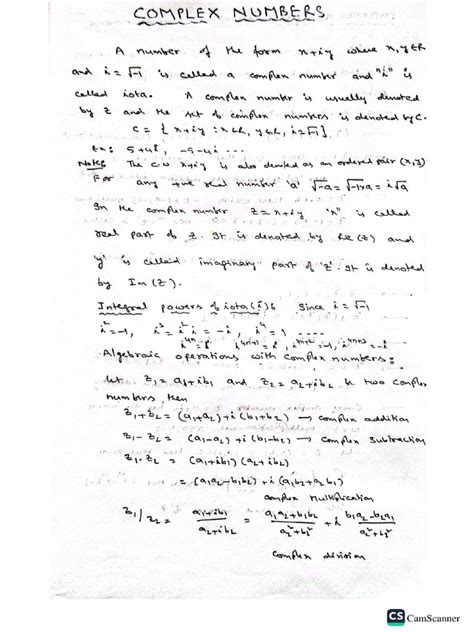 COMPLEX NUMBERS
A number of the form x+iy where x,y∈R
and i = √-1 is called a complex number and "i" is
called iota. A complex number is usually denoted
by Z and the set of complex numbers is denoted by C.
C = { x+iy : x∈R, y∈R, i=√-1 }.
Ex: 5+4i, -5-4i ...
Note: The C.N x+iy is also denoted as an ordered pair (x,y)
For any +ve real number 'a' √-a = √-1×a = i√a
In the complex number Z = x+iy "x" is called
real part of Z. It is denoted by Re(Z) and
'y' is called imaginary part of 'Z'. It is denoted
by Im(Z).
Integral powers of iota(i): Since i = √-1
i² = -1, i³ = i² i = -i, i⁴ = 1 ....
i⁴ⁿ = 1, i⁴ⁿ⁺¹ = i, i⁴ⁿ⁺² = -1, i⁴ⁿ⁺³ = -i
Algebraic operations with complex numbers:
Let Z₁ = a₁+ib₁ and Z₂ = a₂+ib₂ be two complex
numbers, then
Z₁+Z₂ = (a₁+a₂)+i(b₁+b₂) → complex addition
Z₁-Z₂ = (a₁-a₂)+i(b₁-b₂) → complex subtraction
Z₁·Z₂ = (a₁+ib₁)(a₂+ib₂)
= (a₁a₂-b₁b₂)+i(a₁b₂+a₂b₁)
complex multiplication
Z₁/Z₂ = (a₁+ib₁)/(a₂+ib₂) = (a₁a₂+b₁b₂)/(a₂²+b₂²) + i (b₁a₂-b₂a₁)/(a₂²+b₂²)
complex division
CS CamScanner